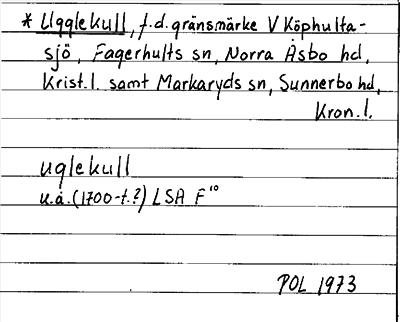 * Ugglekull, f.d. gränsmärke V Köphulta-
sjö, Fagerhults sn, Norra Åsbo hd,
Krist.l. samt Markaryds sn, Sunnerbo hd,
Kron.l.
uglekull
u.å. (1700-t.?) LSA F¹⁰
POL 1973